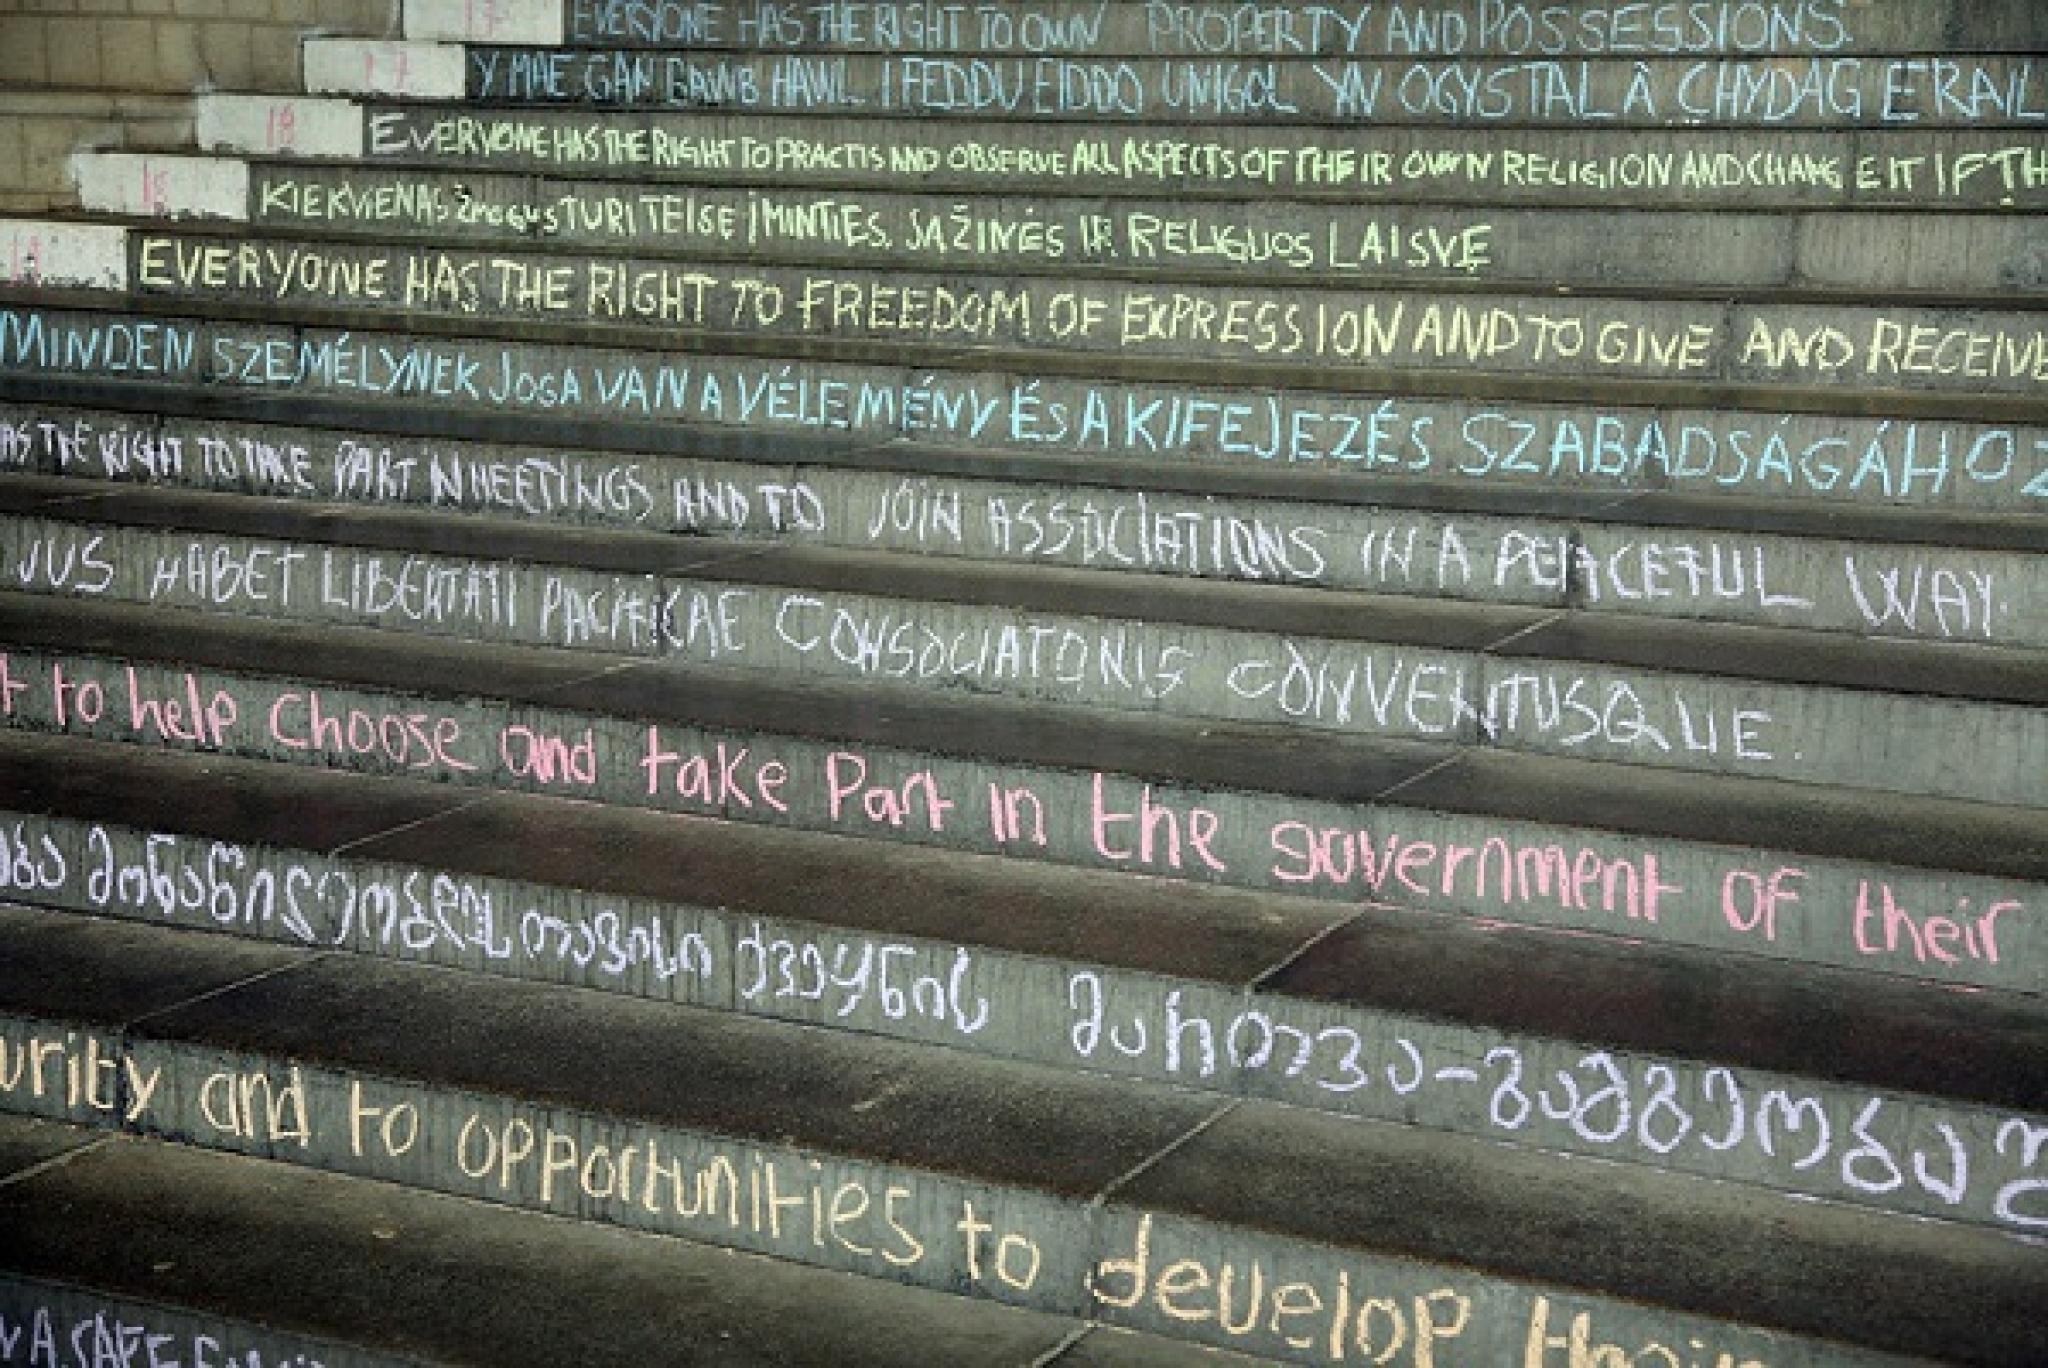 17 EVERYONE HAS THE RIGHT TO OWN PROPERTY AND POSSESSIONS.
17 Y MAE GAN BAWB HAWL I FEDDU EIDDO UNIGOL YN OGYSTAL Â CHYDAG ERAIL
18 EVERYONE HAS THE RIGHT TO PRACTIS AND OBSERVE ALL ASPECTS OF THEIR OWN RELIGION AND CHANGE IT IF TH
18 KIEKVIENAS ŽMOGUS TURI TEISĘ Į MINTIES, SĄŽINĖS IR RELIGIJOS LAISVĘ
19 EVERYONE HAS THE RIGHT TO FREEDOM OF EXPRESSION AND TO GIVE AND RECEIVE
MINDEN SZEMÉLYNEK JOGA VAN A VÉLEMÉNY ÉS A KIFEJEZÉS SZABADSÁGÁHOZ
AS THE RIGHT TO TAKE PART IN MEETINGS AND TO JOIN ASSOCIATIONS IN A PEACEFUL WAY.
JUS HABET LIBERTATI PACIFICAE CONSOCIATONIS CONVENTUSQUE.
t to help choose and take Part in the government of their
მონაწილეობდეს თავისი ქვეყნის მართვა-გამგეობაშ
urity and to opportunities to develop their
A SAFE